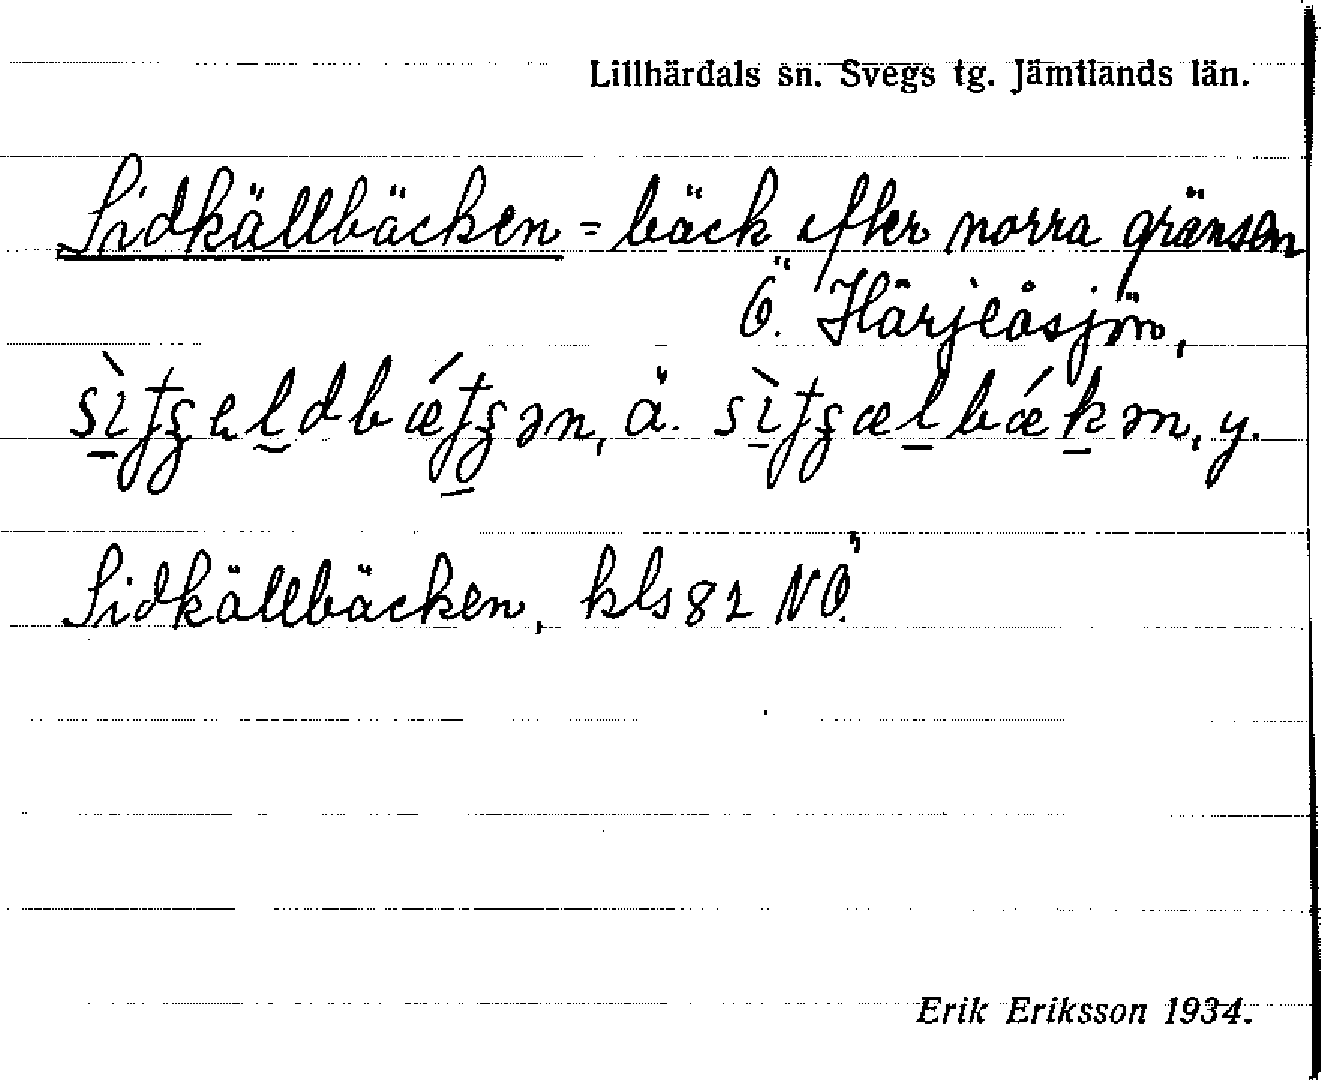 Lillhärdals sn. Svegs tg. Jämtlands län.
Sidkällbäcken = bäck efter norra gränsen
Ö. Härjeåsjön,
Sidkällbäcken, kls 82 NÖ.
Erik Eriksson 1934.